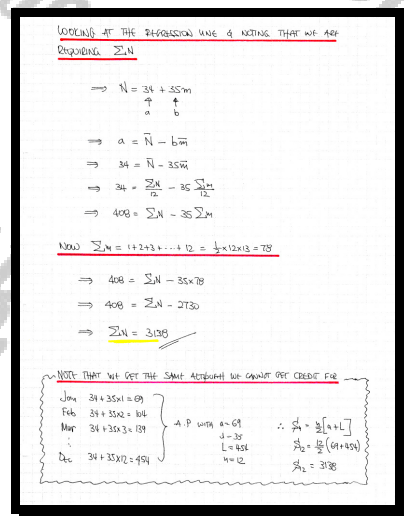 LOOKING AT THE REGRESSION LINE & NOTING THAT WE ARE
REQUIRING ΣN
⇒ N = 34 + 35m
↑ ↑
a b
⇒ a = N̄ - bm̄
⇒ 34 = N̄ - 35m̄
⇒ 34 = ΣN/12 - 35 Σm/12
⇒ 408 = ΣN - 35 Σm
NOW Σm = 1+2+3+....+12 = ½×12×13 = 78
⇒ 408 = ΣN - 35×78
⇒ 408 = ΣN - 2730
⇒ ΣN = 3138
NOTE THAT WE GET THE SAME ALTHOUGH WE CANNOT GET CREDIT FOR
Jan 34 + 35×1 = 69
Feb 34 + 35×2 = 104
Mar 34 + 35×3 = 139
⋮
Dec 34 + 35×12 = 454
A.P WITH a=69
d=35
L=454
n=12
∴ Sₙ = n/2 [a+L]
S₁₂ = 12/2 (69+454)
S₁₂ = 3138